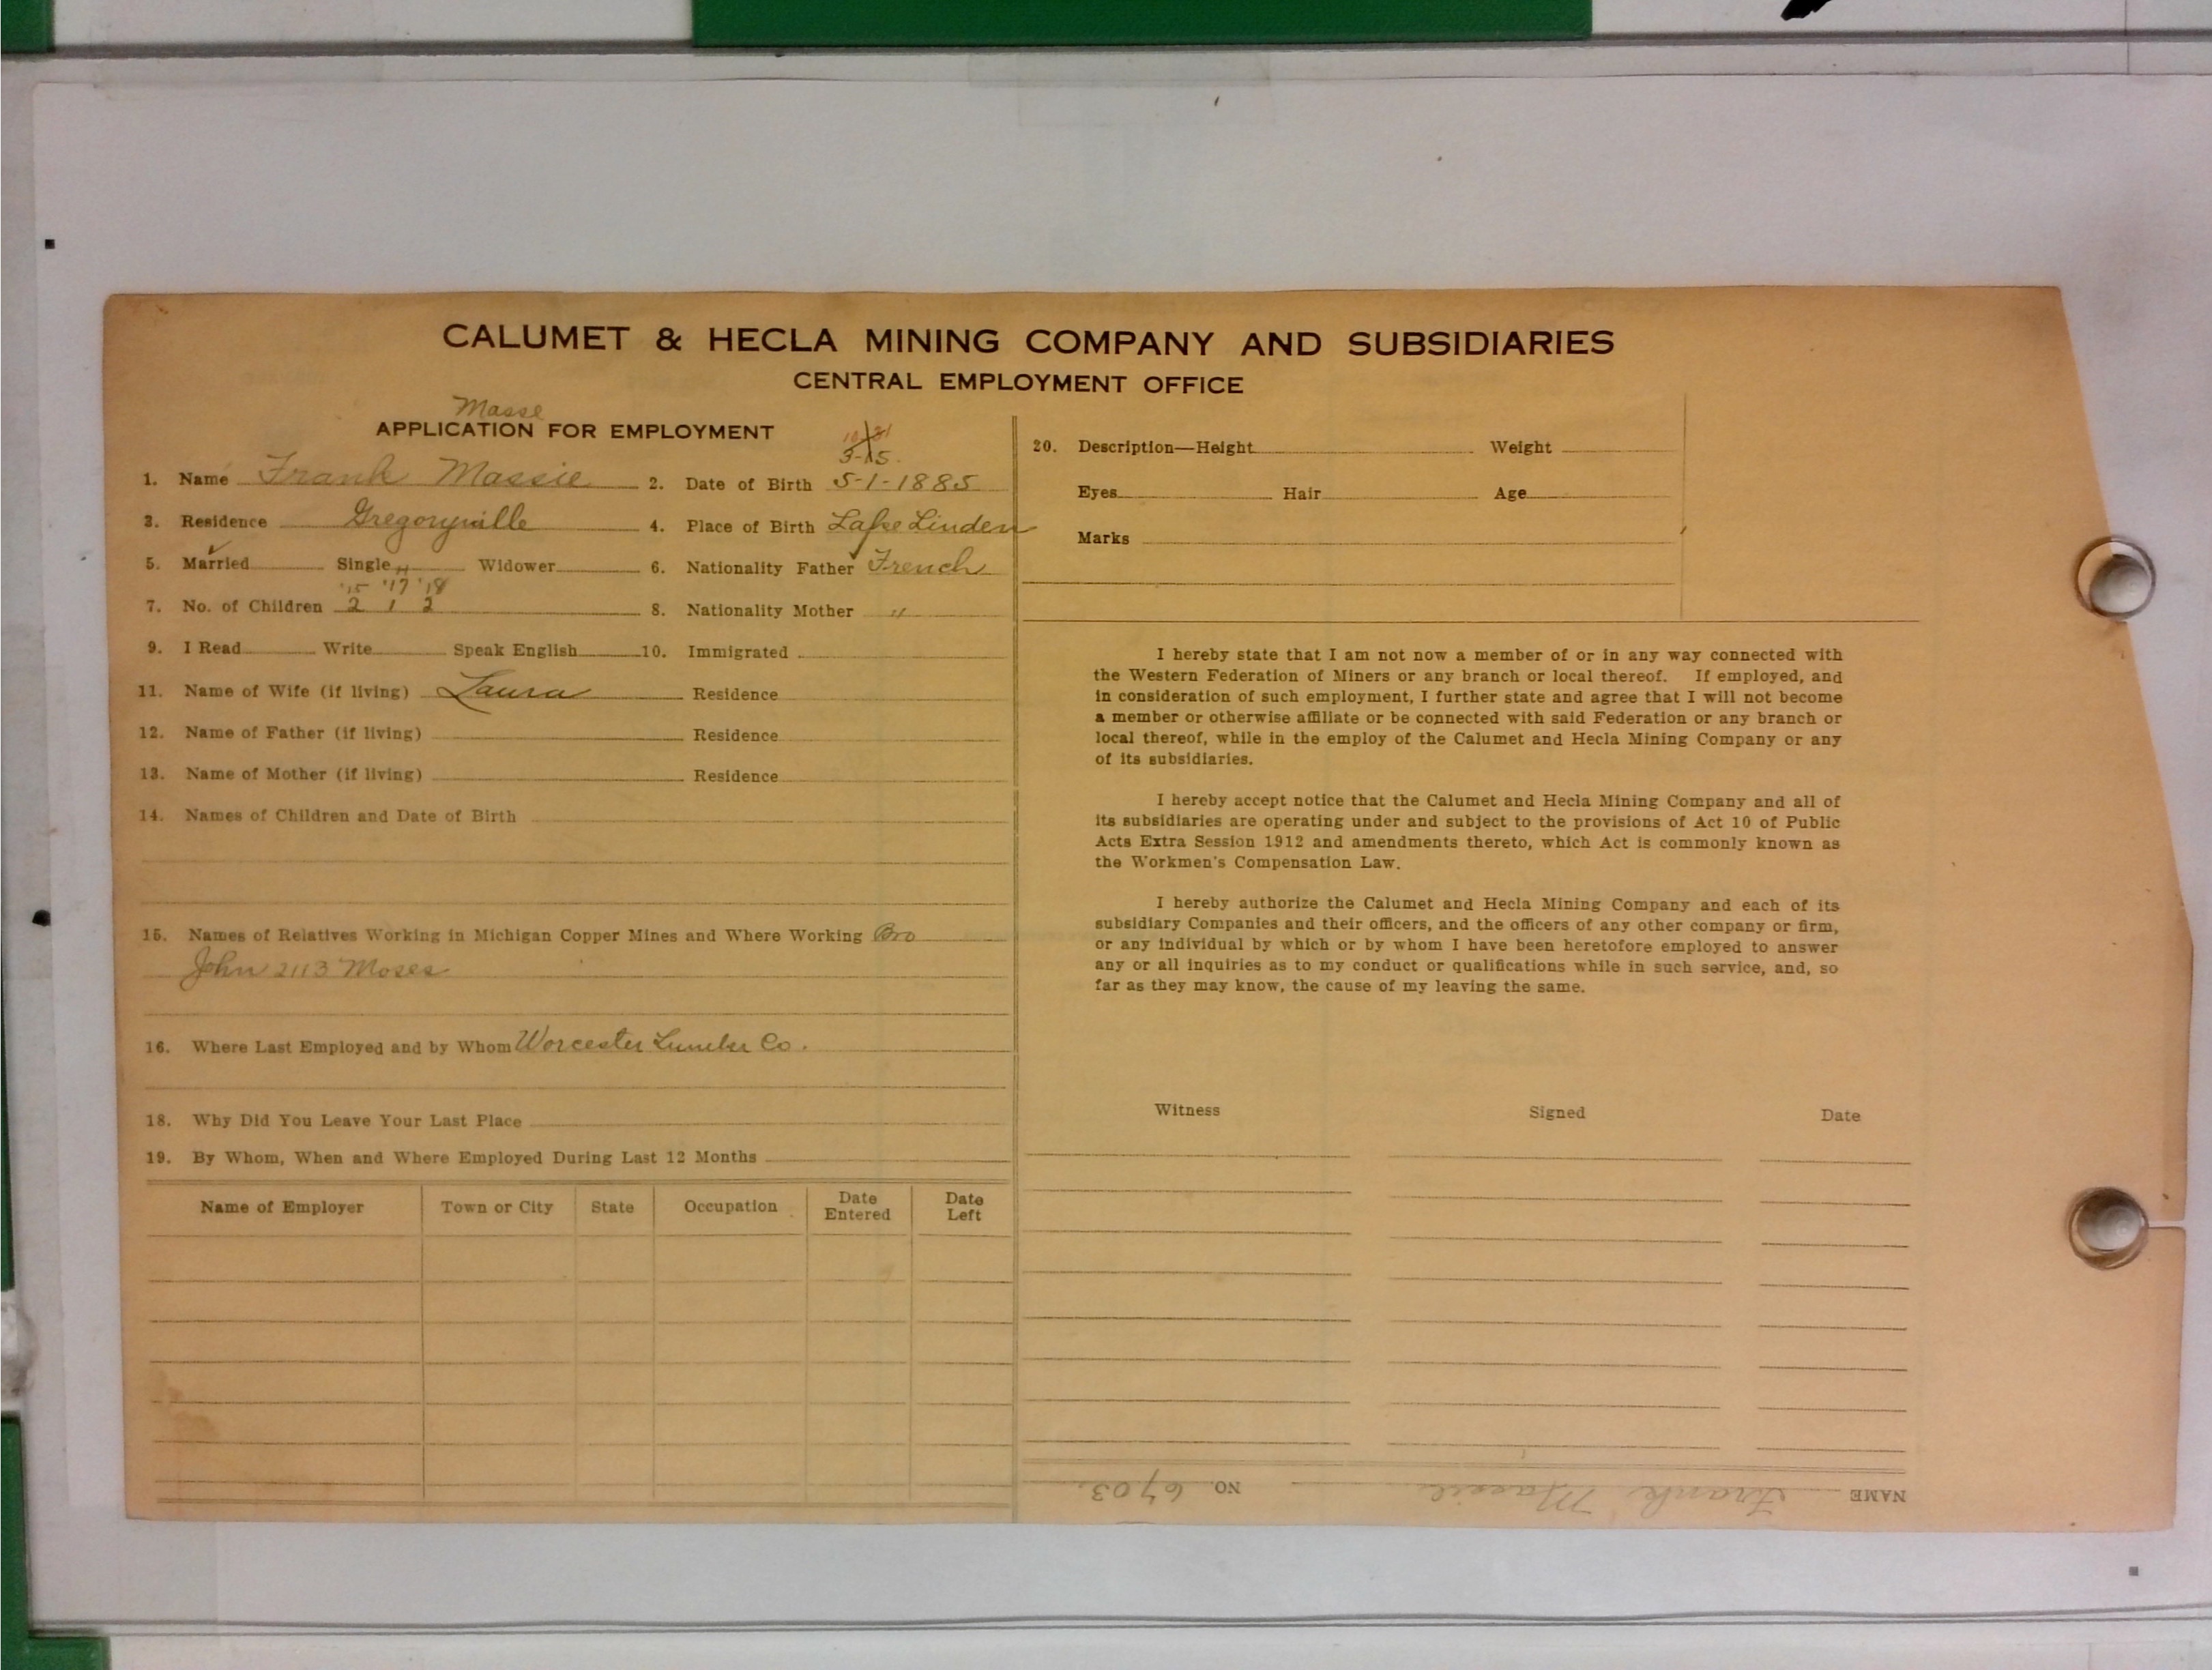 CALUMET & HECLA MINING COMPANY AND SUBSIDIARIES
CENTRAL EMPLOYMENT OFFICE
Masse
APPLICATION FOR EMPLOYMENT
3-15.
1. Name Frank Massie 2. Date of Birth 5-1-1885
3. Residence Gregoryville 4. Place of Birth Lake Linden
5. Married Single Widower 6. Nationality Father French
'15 '17 '18
7. No. of Children 2 1 2 8. Nationality Mother "
9. I Read Write Speak English 10. Immigrated
11. Name of Wife (if living) Laura Residence
12. Name of Father (if living) Residence
13. Name of Mother (if living) Residence
14. Names of Children and Date of Birth
15. Names of Relatives Working in Michigan Copper Mines and Where Working Bro
John 2113 Moses
16. Where Last Employed and by Whom Worcester Lumber Co.
18. Why Did You Leave Your Last Place
19. By Whom, When and Where Employed During Last 12 Months
Name of Employer Town or City State Occupation Date Entered Date Left
20. Description—Height Weight
Eyes Hair Age
Marks
I hereby state that I am not now a member of or in any way connected with
the Western Federation of Miners or any branch or local thereof. If employed, and
in consideration of such employment, I further state and agree that I will not become
a member or otherwise affiliate or be connected with said Federation or any branch or
local thereof, while in the employ of the Calumet and Hecla Mining Company or any
of its subsidiaries.
I hereby accept notice that the Calumet and Hecla Mining Company and all of
its subsidiaries are operating under and subject to the provisions of Act 10 of Public
Acts Extra Session 1912 and amendments thereto, which Act is commonly known as
the Workmen's Compensation Law.
I hereby authorize the Calumet and Hecla Mining Company and each of its
subsidiary Companies and their officers, and the officers of any other company or firm,
or any individual by which or by whom I have been heretofore employed to answer
any or all inquiries as to my conduct or qualifications while in such service, and, so
far as they may know, the cause of my leaving the same.
Witness Signed Date
NAME Frank Massie NO. 6703.